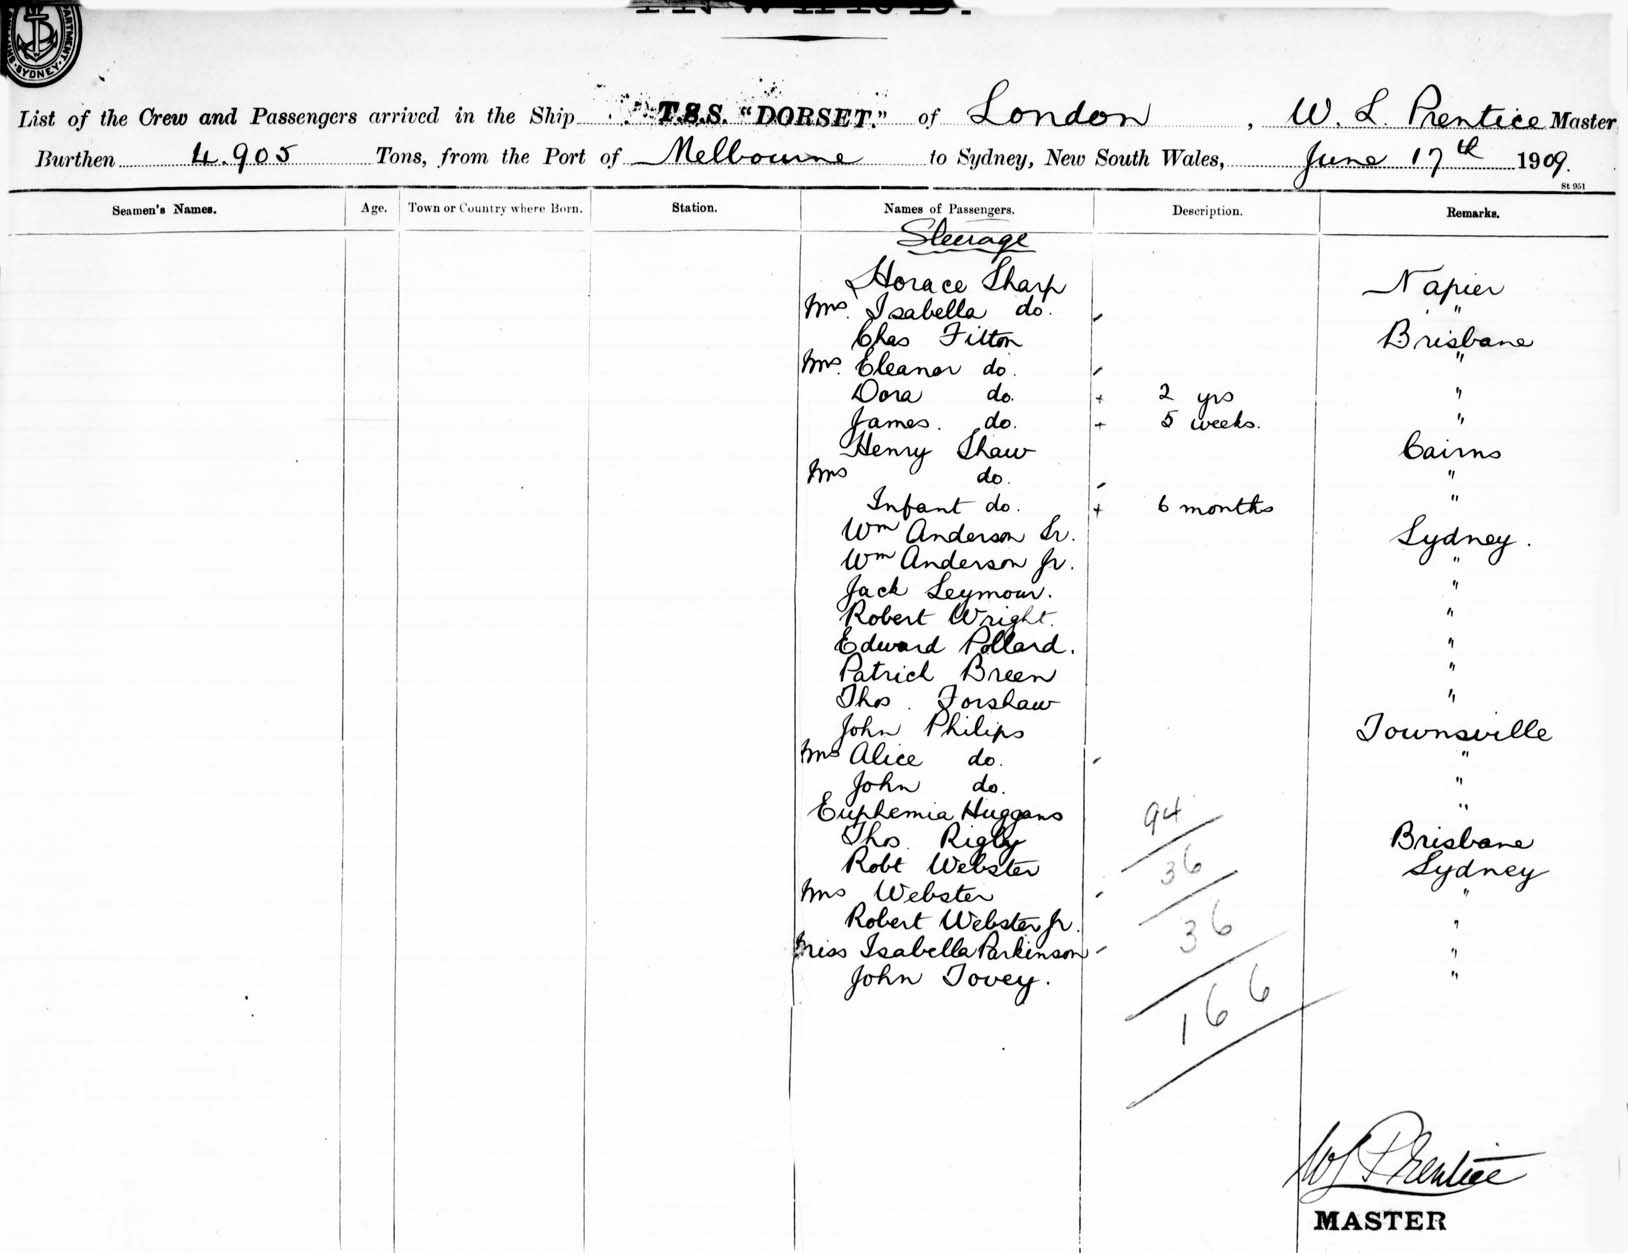 SYDNEY
INWARD.
List of the Crew and Passengers arrived in the Ship T.S.S. "DORSET." of London, W. L. Prentice Master
Burthen 4.905 Tons, from the Port of Melbourne to Sydney, New South Wales, June 17th 1909.
St 951
Seamen's Names. Age. Town or Country where Born. Station. Names of Passengers. Description. Remarks.
Steerage
Horace Sharp Napier
Mrs. Isabella do. "
Chas Fitton Brisbane
Mrs. Eleanor do. "
Dora do. + 2 yrs "
James. do. + 5 weeks. "
Henry Shaw Cairns
Mrs do. "
Infant do. + 6 months "
Wm Anderson Sr. Sydney.
Wm Anderson Jr. "
Jack Seymour. "
Robert Wright. "
Edward Pollard. "
Patrick Breen "
Thos. Forshaw "
John Philips Townsville
Mrs Alice do. "
John do. "
Euphemia Huggans "
Thos. Rigby Brisbane
Robt Webster Sydney
Mrs Webster "
Robert Webster Jr. "
Miss Isabella Parkinson "
John Tovey. "
94
36
36
166
WL Prentice
MASTER